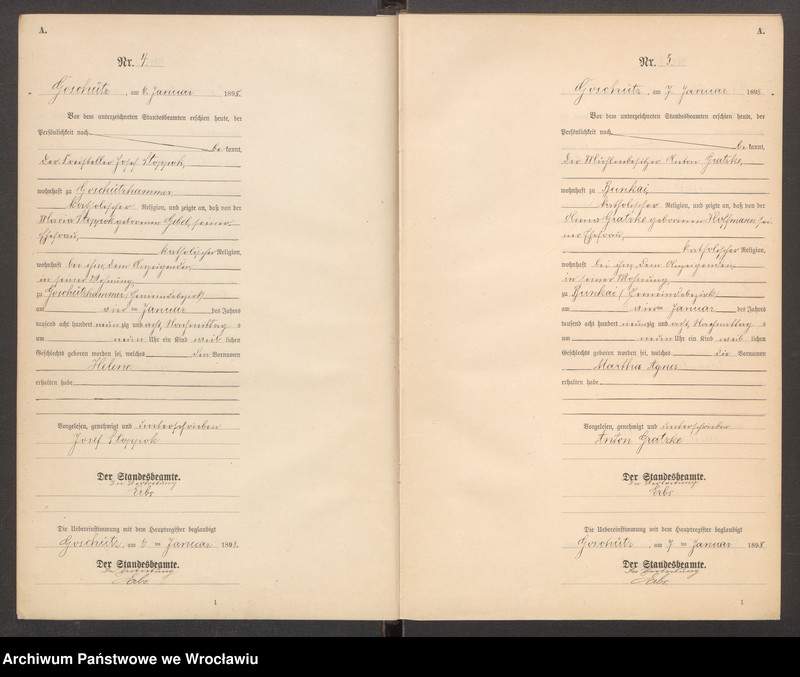 A.
Nr. 4.
Goschütz, am 6. Januar 1898.
Vor dem unterzeichneten Standesbeamten erschien heute, der
Persönlichkeit nach
bekannt,
der Josef Stoppok,
wohnhaft zu Goschützhammer
katholischer Religion, und zeigte an, daß von der
Maria Stoppok geborenen seiner
Ehefrau,
katholischer Religion,
wohnhaft bei ihm, dem Anzeigenden,
in seiner Wohnung
zu Goschützhammer (Gemeindebezirk)
am vierten Januar des Jahres
tausend acht hundert neunzig und acht, Nachmittag s
um neun Uhr ein Kind weib lichen
Geschlechts geboren worden sei, welches den Vornamen
Helene
erhalten habe
Vorgelesen, genehmigt und unterschrieben
Josef Stoppok
Der Standesbeamte.
In Vertretung
Erbs
Die Uebereinstimmung mit dem Hauptregister beglaubigt
Goschütz, am 6 ten Januar 1898.
Der Standesbeamte.
In Vertretung
Erbs
1
A.
Nr. 5.
Goschütz, am 7. Januar 1898.
Vor dem unterzeichneten Standesbeamten erschien heute, der
Persönlichkeit nach
bekannt,
der Mühlenbesitzer Anton Gratzke,
wohnhaft zu Bunkai
katholischer Religion, und zeigte an, daß von der
Gratzke geborenen Hoffmann, sei
ner Ehefrau,
katholischer Religion,
wohnhaft bei ihm, dem Anzeigenden,
in seiner Wohnung
zu Bunkai (Gemeindebezirk)
am vierten Januar des Jahres
tausend acht hundert neunzig und acht, Nachmittag s
um neun Uhr ein Kind weib lichen
Geschlechts geboren worden sei, welches die Vornamen
Martha Agnes
erhalten habe
Vorgelesen, genehmigt und unterschrieben
Anton Gratzke
Der Standesbeamte.
In Vertretung
Erbs
Die Uebereinstimmung mit dem Hauptregister beglaubigt
Goschütz, am 7 ten Januar 1898.
Der Standesbeamte.
In Vertretung
Erbs
1
Archiwum Państwowe we Wrocławiu